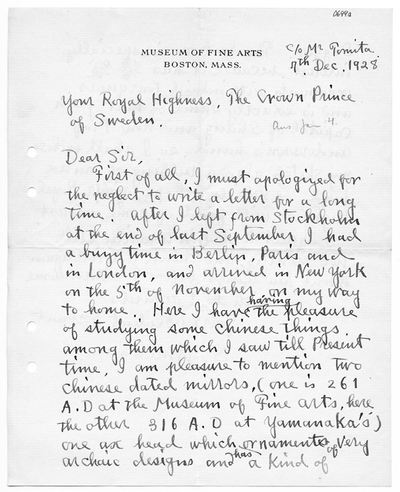 0644a
MUSEUM OF FINE ARTS
BOSTON, MASS.
c/o Mr Tomita
7th Dec. 1928
Your Royal Highness, The Crown Prince
of Sweden.
Ans. Jan 4.
Dear Sir,
First of all, I must apologized for
the neglect to write a letter for a long
time. After I left from Stockholm
at the end of last September I had
a buzy time in Berlin, Paris and
in London, and arrived in New York
on the 5th of November on my way
to home. Here I have having the pleasure
of studying some Chinese things.
among them which I saw till Present
time, I am pleasure to mention two
Chinese dated mirrors, (one is 261
A.D at the Museum of Fine arts, here
the other 316 A.D at Yamanaka's)
one axe head which ornaments of very
archaic designs and has a kind of